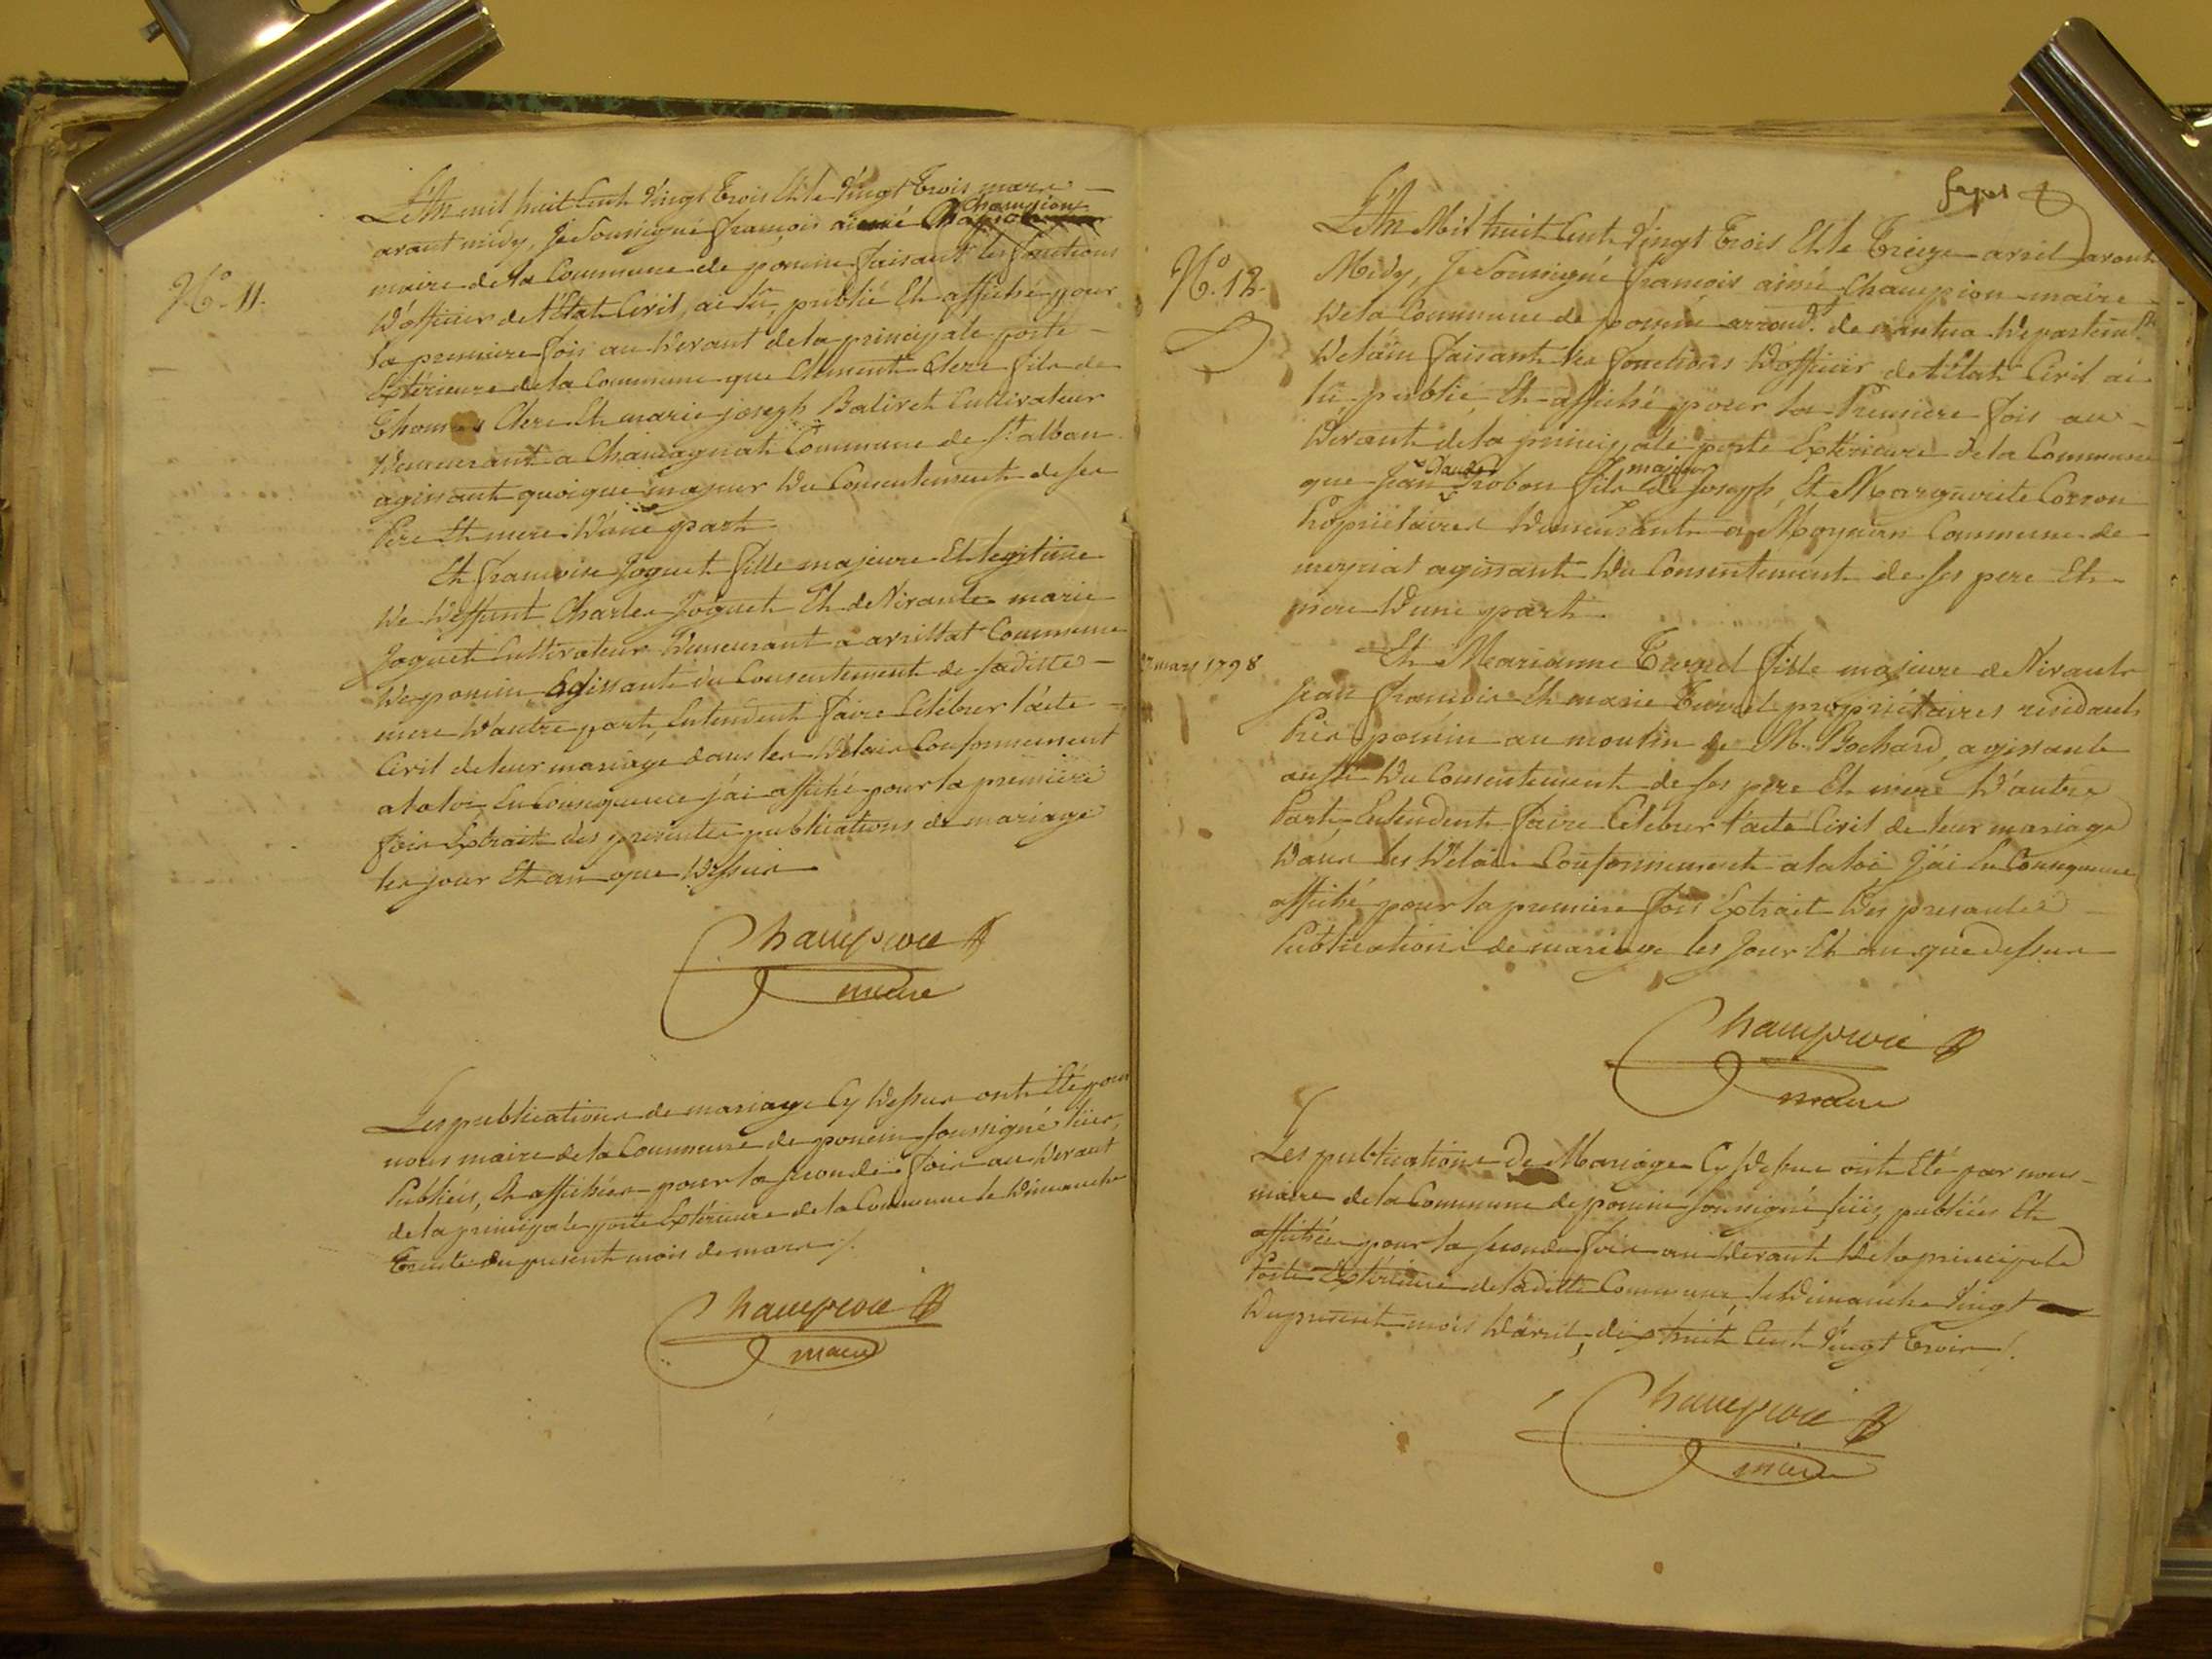 N.º 11.
L'An mil huit Cent Vingt Trois Et le Vingt Trois mars
avant midy, Je Soussigné françois aimé Champion
maire de la Commune de poncin faisant les fonctions
d'officier de l'Etat Civil, ai lû, publié Et affiché pour
la premiere fois au devant de la principale porte
Extérieure de la Commune que Clement Clerc fils de
Thomas Clerc Et marie joseph Balivet Cultivateur
demeurant a Chamagnat Commune de St. alban
agissant quoique majeur du Consentement de ses
Pere Et mere d'une part
Et francoise Joguet fille majeure Et legitime
de deffunt Charles Joguet Et de Vivante marie
Joguet Cultivateur demeurant a avrillat Commune
de poncin agissante du Consentement de saditte
mere d'autre part, Entendent faire Celebrer l'acte
Civil de leur mariage dans les délais Conformement
a la loi En Consequence j'ai affiché pour la premiere
fois Extrait des presentes publications de mariage
les jour Et an que dessus
Champion
maire
Les publications de mariage Cy dessus ont Eté par
nous maire de la Commune de poncin soussigné lües,
Publiées, Et affichées pour la seconde fois au devant
de la principale porte Extérieure de la Commune le dimanche
Trente du present mois de mars /.
Champion
maire
N.º 12.
L'An Mil huit Cent Vingt Trois Et le Treize avril avant
Midy, Je Soussigné françois aimé Champion maire
de la Commune de poncin arrond.t de nantua departem.t
de l'ain faisant les fonctions d'officier de l'Etat Civil ai
lû publié Et affiché pour la Premiere fois au
devant de la principale porte Extérieure de la Commune
que Jean Claude Probon fils majeur de Joseph, Et Marguerite Corron
Propriétaires demeurants a Moyrian Commune de
meyriat agissant du Consentement de ses pere Et
mere d'une part
27 mars 1798
Et Marianne Turrel fille majeure de Vivants
Jean francois Et marie Turrel propriétaires residants
Près poncin au moulin de M. Bochard, agissante
aussi du Consentement de ses pere Et mere d'autre
Part Entendent faire Celebrer l'acte Civil de leur mariage
dans les délais Conformement a la loi J'ai En Consequence
affiché pour la premiere fois Extrait des presantes
Publications de mariage les Jour Et an que dessus
Champion
maire
Les publications de Mariage Cy dessus ont Eté par nous
maire de la Commune de poncin soussigné lües, publiées Et
affichées pour la seconde fois au devant de la principale
Porte Extérieure de laditte Commune, le dimanche Vingt
du present mois d'avril, dix huit Cent Vingt Trois /.
Champion
maire